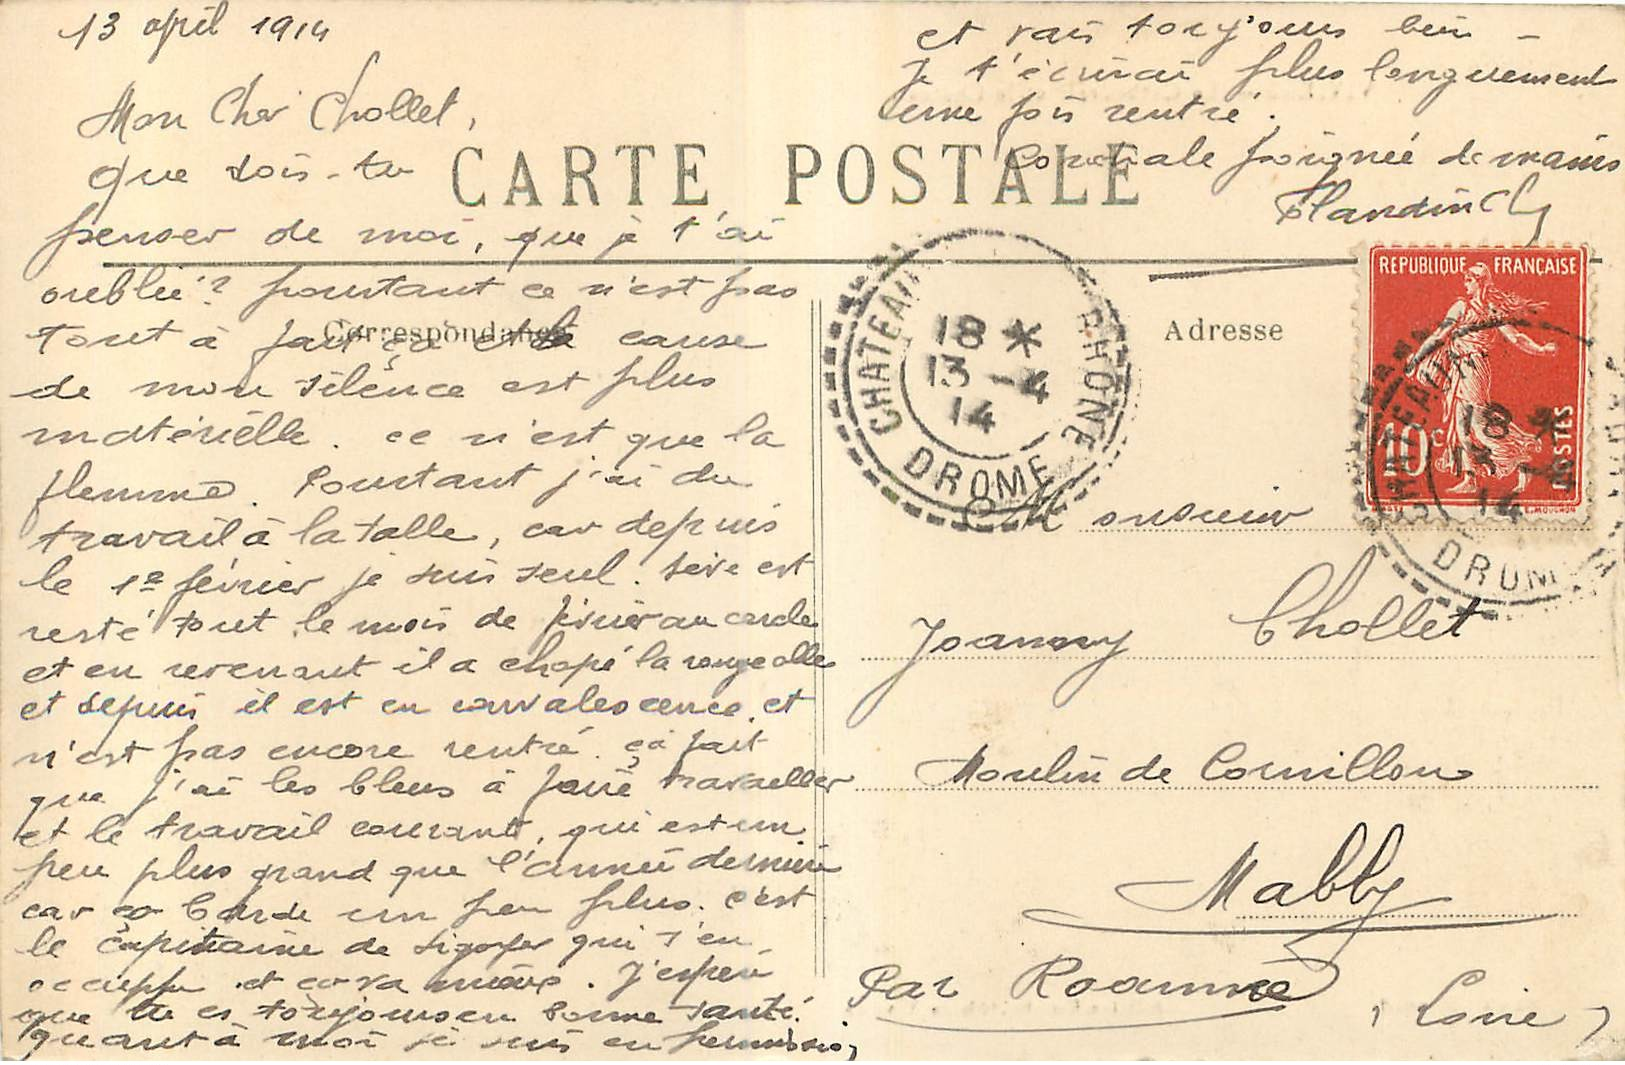 13 april 1914
Mon Cher Chollet,
que dois-tu
CARTE POSTALE
penser de moi, que je t'ai
oublié? pourtant ce n'est pas
tout à fait ça et la cause
Correspondance
de mon silence est plus
matérielle. ce n'est que la
flemme. Pourtant j'ai du
travail à la talle, car depuis
le 1e février je suis seul.
est
resté tout le mois de février au
et en revenant il a chopé la rougeolle
et depuis il est en convalescence, et
n'est pas encore rentré. ça fait
que j'ai les bleus à faire travailler
et le travail courant, qui est un
peu plus grand que l'année dernière
car ça barde un peu plus. c'est
le capitaine de Sigoyer qui s'en
occuppe et ça va mieux. J'espère
que tu es toujours en bonne santé.
quant à moi je suis en permission,
et vais toujours bien -
Je t'écrirai plus longuement
une fois rentré.
Cordiale poignée de mains
Flandin Cl
Adresse
REPUBLIQUE FRANÇAISE
10c
POSTES
E. MOUCHON
CHATEAUN
RHONE
DROME
18 *
13 -4
14
CHATEAUN
DROM
18 *
13 -4
14
Monsieur
Joanny Chollet
Moulin de Cornillon
Mably
Par Roanne
(Loire)